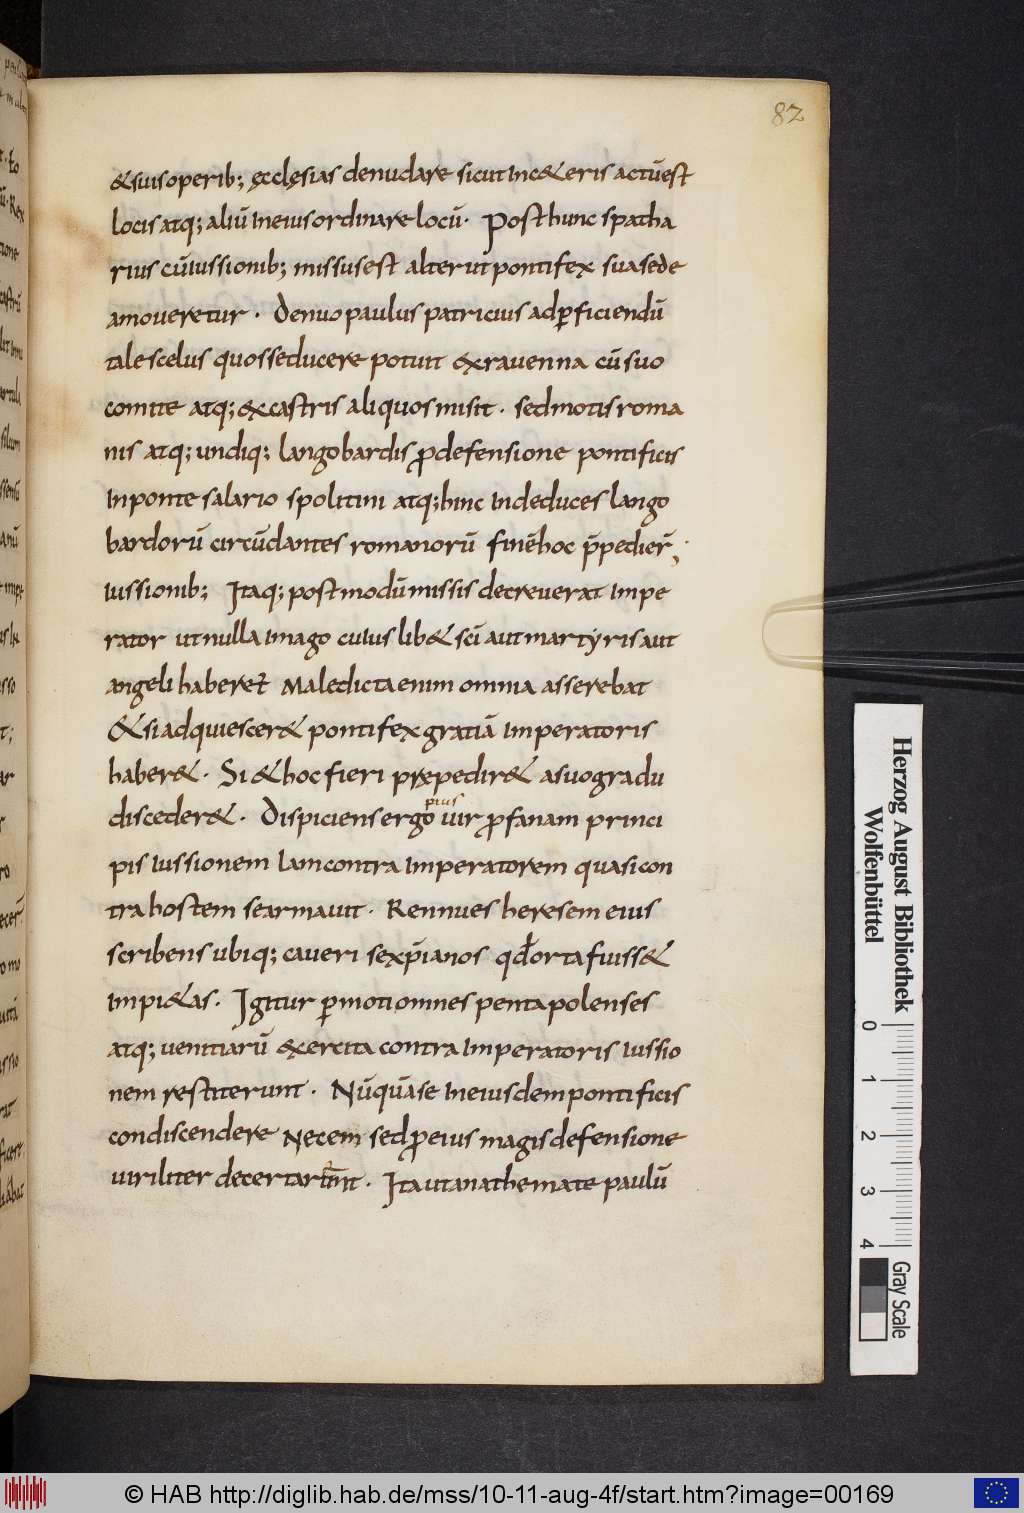 82
&suisoperib; ęcclęsias denudare sicut Inc&eris actūest
locis atq; aliū Ineius ordinare locū. Post hunc spatha
rius cūiussionib; missus est alter ut pontifex sua sede
amoueretur. Denuo paulus patricius ad ꝑficiendū
tale scelus quos seducere potuit exrauenna cū suo
comite atq; excastris aliquos misit. sed motis roma
nis atq; undiq; langobardis ꝓdefensione pontificis
Inponte salario spolitini atq; hinc Indeduces lango
bardorū circūdantes romanorū finēhoc p̄pedier̄
Iussionib; Itaq; postmodū missis decreuerat Impe
rator ut nulla Imago cuius lib& sc̄i aut martyris aut
angeli haberet Maledicta enim omnia asserebat
&si adquiescer& pontifex gratiā Imperatoris
haber&. Si & hoc fieri prepedir& asuo gradu
disceder&. Dispiciens ergo pius uir ꝓfanam princi
pis Iussionem Iam contra Imperatorem quasi con
tra hostem se armauit. Rennues heresem eius
scribens ubiq; caueri sexp̄ianos qđ orta fuiss&
Impi&as. Igitur ꝑmoti omnes pentapolenses
atq; uenitiarū exercita contra Imperatoris Iussio
nem restiterunt. Nūquā se Ineiusdem pontificis
condiscendere Necem sed ꝓeius magis defensione
uiriliter decertarent. Ita ut anathemate paulū
Herzog August Bibliothek
Wolfenbüttel
0 1 2 3 4
Gray Scale
© HAB http://diglib.hab.de/mss/10-11-aug-4f/start.htm?image=00169